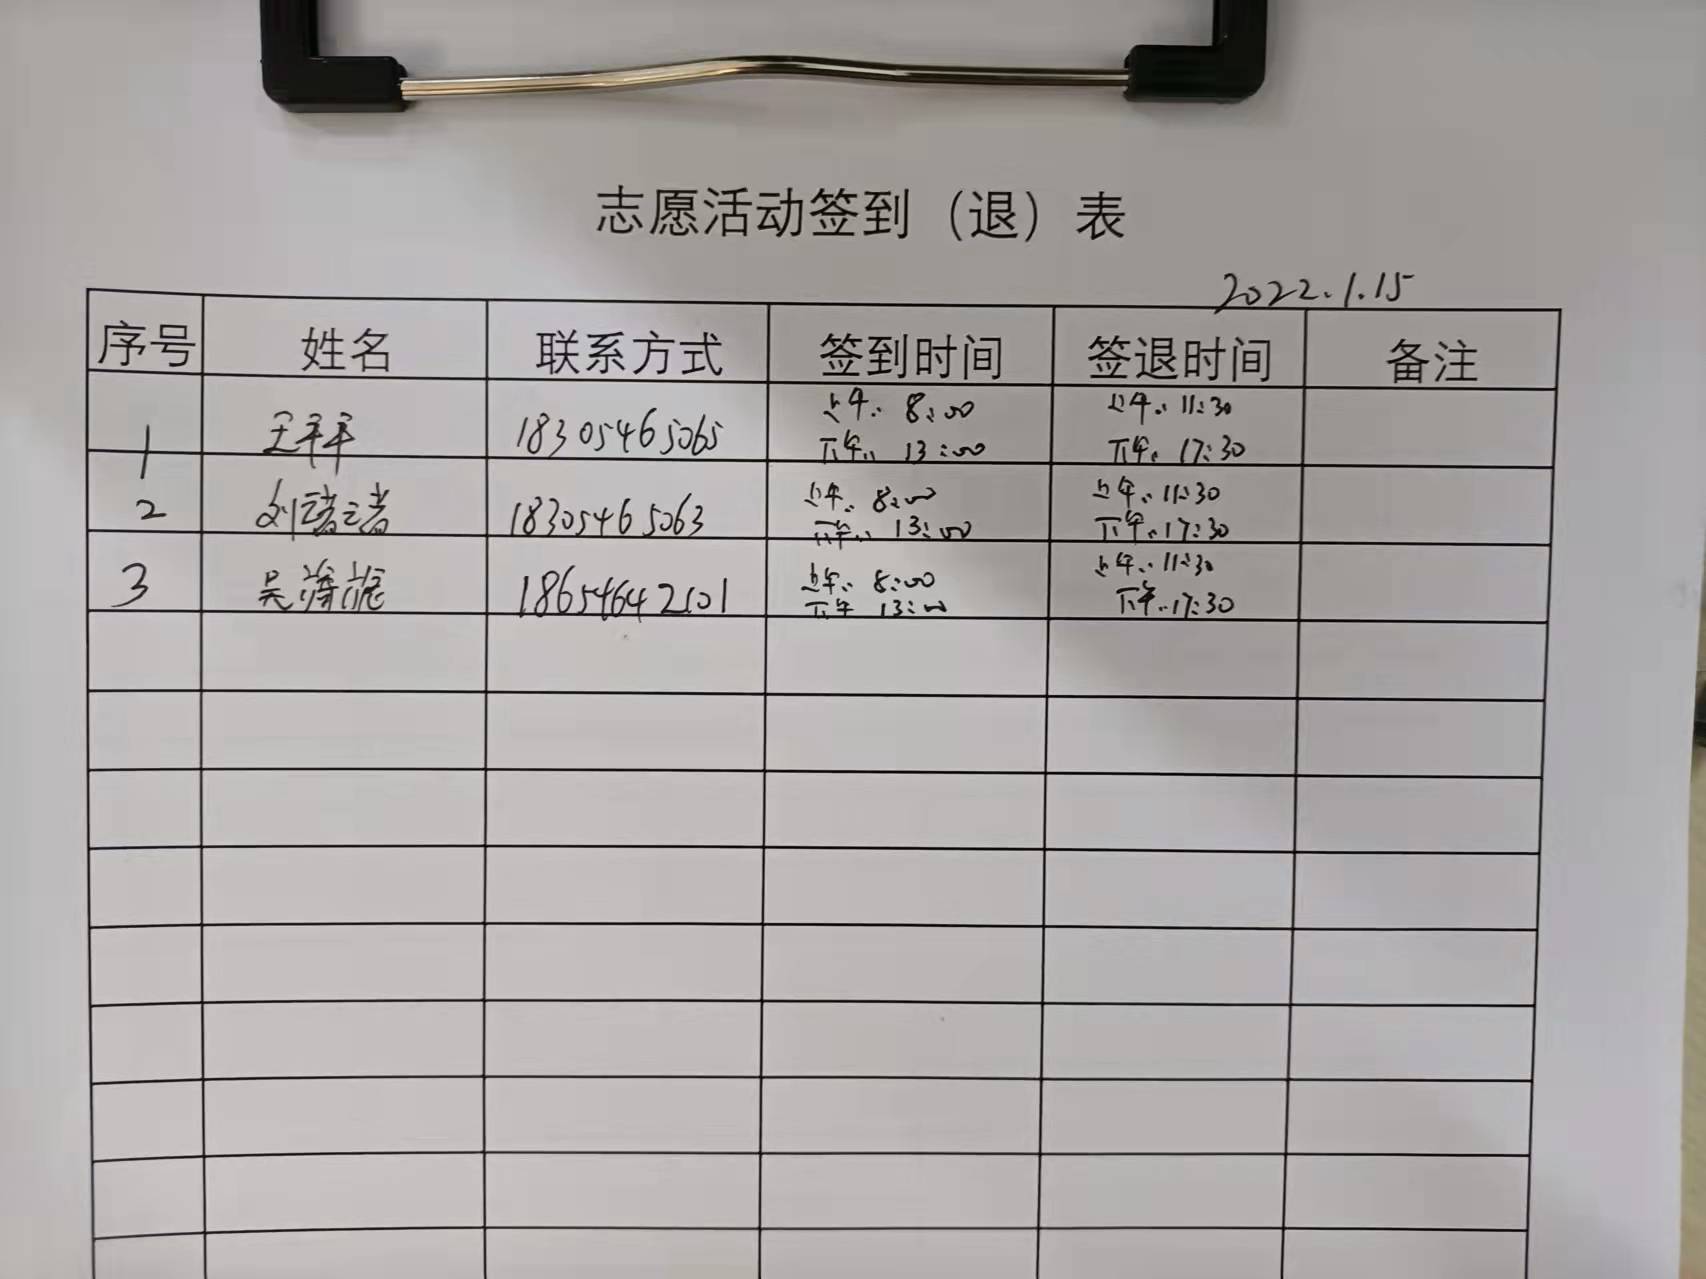 志愿活动签到（退）表
2022.1.15
序号 姓名 联系方式 签到时间 签退时间 备注
1 王平平 18305465065 上午：8:00 上午：11:30
下午：13:00 下午：17:30
2 刘 18305465063 上午：8:00 上午：11:30
下午：13:00 下午：17:30
3 吴 18654642101 上午：8:00 上午：11:30
下午 13:00 下午：17:30